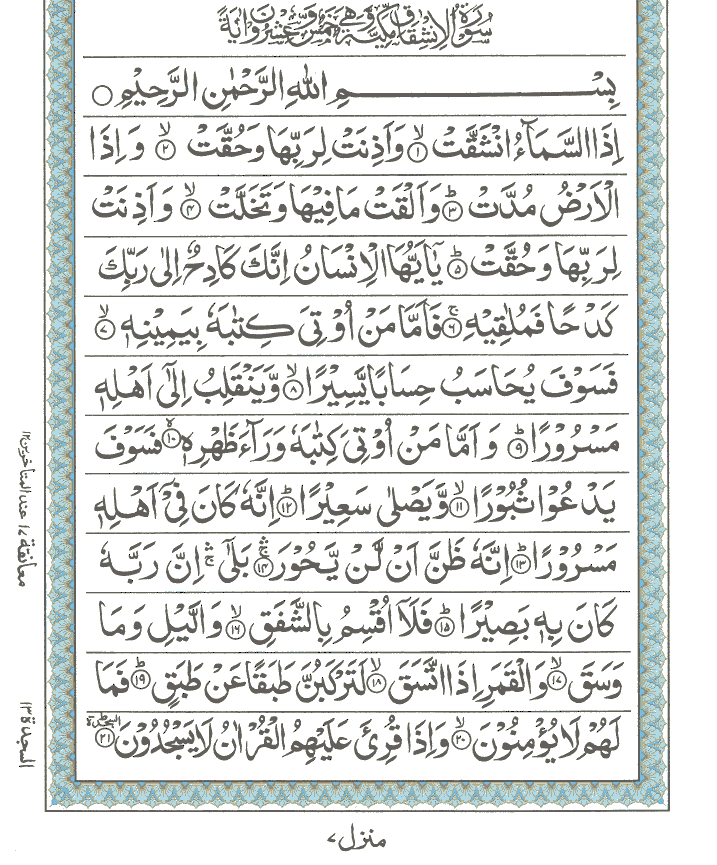 سُوْرَةُ الْاِنْشِقَاقِ مَكِّيَّةٌ وَّهِيَ خَمْسٌ وَّعِشْرُوْنَ اٰيَةً
بِسْمِ اللهِ الرَّحْمٰنِ الرَّحِيْمِ ○
اِذَا السَّمَآءُ انْشَقَّتْ ۙ﴿۱﴾ وَاَذِنَتْ لِرَبِّهَا وَحُقَّتْ ۙ﴿۲﴾ وَاِذَا
الْاَرْضُ مُدَّتْ ؕ﴿۳﴾ وَاَلْقَتْ مَا فِيْهَا وَتَخَلَّتْ ۙ﴿۴﴾ وَاَذِنَتْ
لِرَبِّهَا وَحُقَّتْ ؕ﴿۵﴾ يٰٓاَيُّهَا الْاِنْسَانُ اِنَّكَ كَادِحٌ اِلٰى رَبِّكَ
كَدْحًا فَمُلٰقِيْهِ ۚ﴿۶﴾ فَاَمَّا مَنْ اُوْتِيَ كِتٰبَهٗ بِيَمِيْنِهٖ ۙ﴿۷﴾
فَسَوْفَ يُحَاسَبُ حِسَابًا يَّسِيْرًا ۙ﴿۸﴾ وَّيَنْقَلِبُ اِلٰٓى اَهْلِهٖ
مَسْرُوْرًا ؕ﴿۹﴾ وَاَمَّا مَنْ اُوْتِيَ كِتٰبَهٗ وَرَآءَ ظَهْرِهٖ ۙ﴿۱۰﴾ فَسَوْفَ
يَدْعُوْا ثُبُوْرًا ۙ﴿۱۱﴾ وَّيَصْلٰى سَعِيْرًا ؕ﴿۱۲﴾ اِنَّهٗ كَانَ فِيْٓ اَهْلِهٖ
مَسْرُوْرًا ؕ﴿۱۳﴾ اِنَّهٗ ظَنَّ اَنْ لَّنْ يَّحُوْرَ ۛۚ﴿۱۴﴾ بَلٰٓى ۛۚ اِنَّ رَبَّهٗ
كَانَ بِهٖ بَصِيْرًا ؕ﴿۱۵﴾ فَلَآ اُقْسِمُ بِالشَّفَقِ ۙ﴿۱۶﴾ وَالَّيْلِ وَمَا
وَسَقَ ۙ﴿۱۷﴾ وَالْقَمَرِ اِذَا اتَّسَقَ ۙ﴿۱۸﴾ لَتَرْكَبُنَّ طَبَقًا عَنْ طَبَقٍ ؕ﴿۱۹﴾ فَمَا
لَهُمْ لَا يُؤْمِنُوْنَ ۙ﴿۲۰﴾ وَاِذَا قُرِئَ عَلَيْهِمُ الْقُرْاٰنُ لَا يَسْجُدُوْنَ ؕ﴿۲۱﴾ السجدة
معانقة ۱۷ عند المتاخرين ۱۲
السجدة ۱۳
منزل ۷